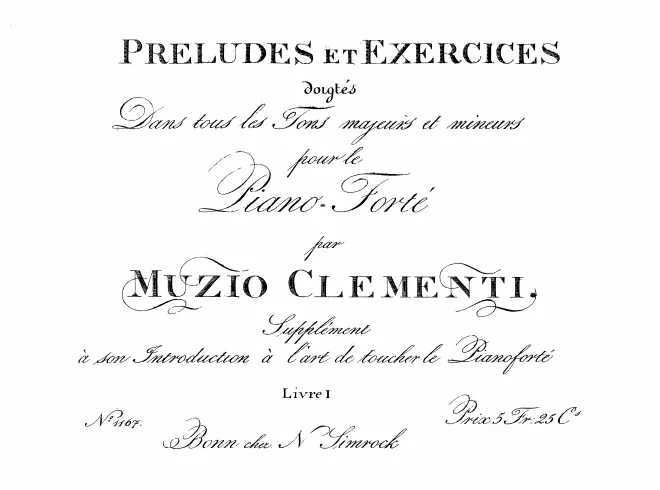 PRELUDES ET EXERCICES
doigtés
Dans tous les Tons majeurs et mineurs
pour le
Piano-Forté
par
MUZIO CLEMENTI.
Supplément
à son Introduction à l'art de toucher le Pianoforté
Livre I
Nº 1167.
Prix 5 Fr. 25 Cs
Bonn chez N Simrock